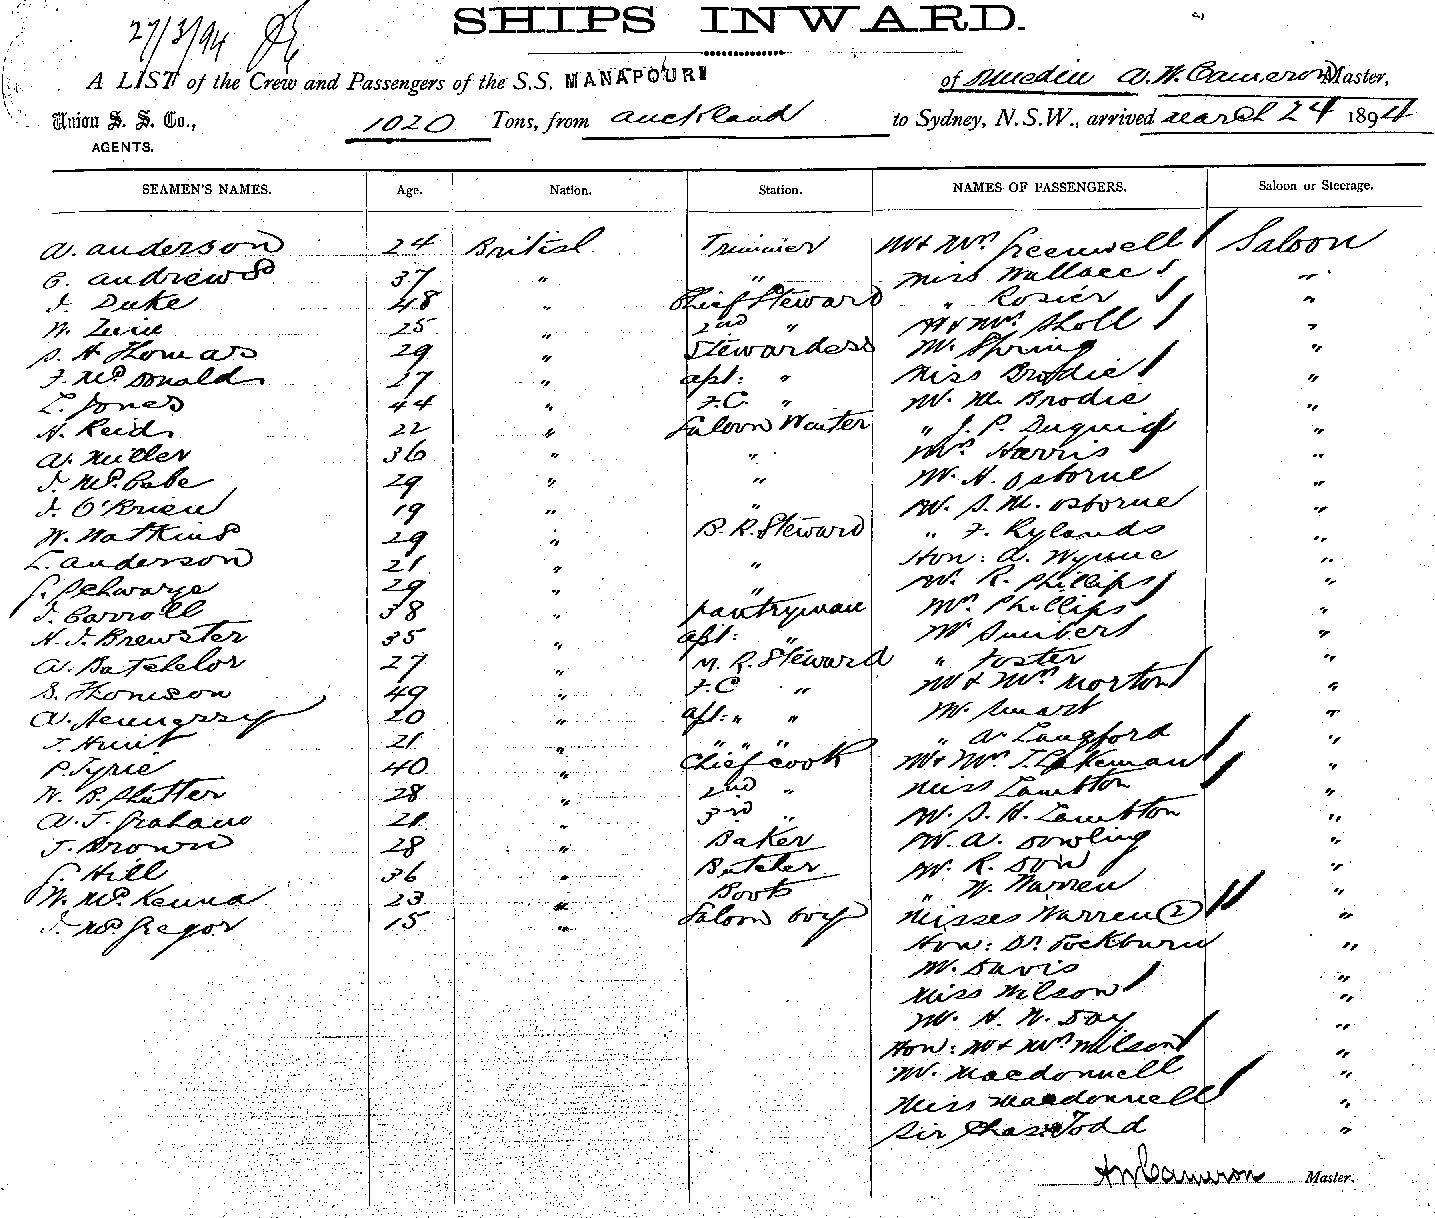 SHIPS INWARD.
27/3/94
A LIST of the Crew and Passengers of the S.S. MANAPOURI of Dunedin A. W. Cameron Master,
Union S. S. Co., 1020 Tons, from Auckland to Sydney, N.S.W., arrived March 24 1894
AGENTS.
SEAMEN'S NAMES. Age. Nation. Station. NAMES OF PASSENGERS. Saloon or Steerage.
A. Anderson 24 British Trimmer Mr & Mrs Greenwell Saloon
C. Andrews 37 " " Miss Wallace "
J. Duke 48 " Chief Steward " Rosier "
W. 25 " 2nd " Mr & Mrs Sholl "
S. A Thomas 29 " Stewardess Mr Spring "
F. McDonald 27 " asst: " Miss Brodie "
L. Jones 44 " F.C. " Mr. M. Brodie "
H. Reid 22 " Saloon Waiter " J. P. Duguid "
A. Miller 36 " " Mrs Harris "
J. McCabe 29 " " Mr. H. Osborne "
J. O'Brien 19 " " Mr. S. M. Osborne "
W. Watkins 29 " B. R. Steward " F. Rylands "
L. Anderson 21 " " Hon: A. Wynne "
G. Schwarze 29 " " Mr. R. Phillips "
J. Carroll 38 " Pantryman Mrs Phillips "
H. J. Brewster 35 " asst: " Mr "
A. Batchelor 27 " M. R. Steward " Foster "
S. Thomson 49 " F.C " Mr & Mrs Morton "
A. Hennessy 20 " asst: " " Mr. Smart "
J. Hunt 21 " " " " " A. Langford "
P. Tyrie 40 " Chief Cook Mr & Mrs J. Lakeman "
W. B. Slutter 28 " 2nd " Miss Lambton "
A. J. Graham 21 " 3rd " Mr. S. H. Lambton "
J. Brown 28 " Baker Mr. A. Dowling "
G. Hill 36 " Butcher Mr R. Don "
W. McKenna 23 " Boots " W. Warren "
J. McGregor 15 " Saloon boy Misses Warren (2) "
Hon: Dr. Pockburn "
Mr. Davis "
Miss Wilson "
Mr. H. W. Day "
Hon: Mr & Mrs Wilson "
Mr. Macdonnell "
Miss Macdonnell "
Sir Chas. Todd "
A W Cameron Master.